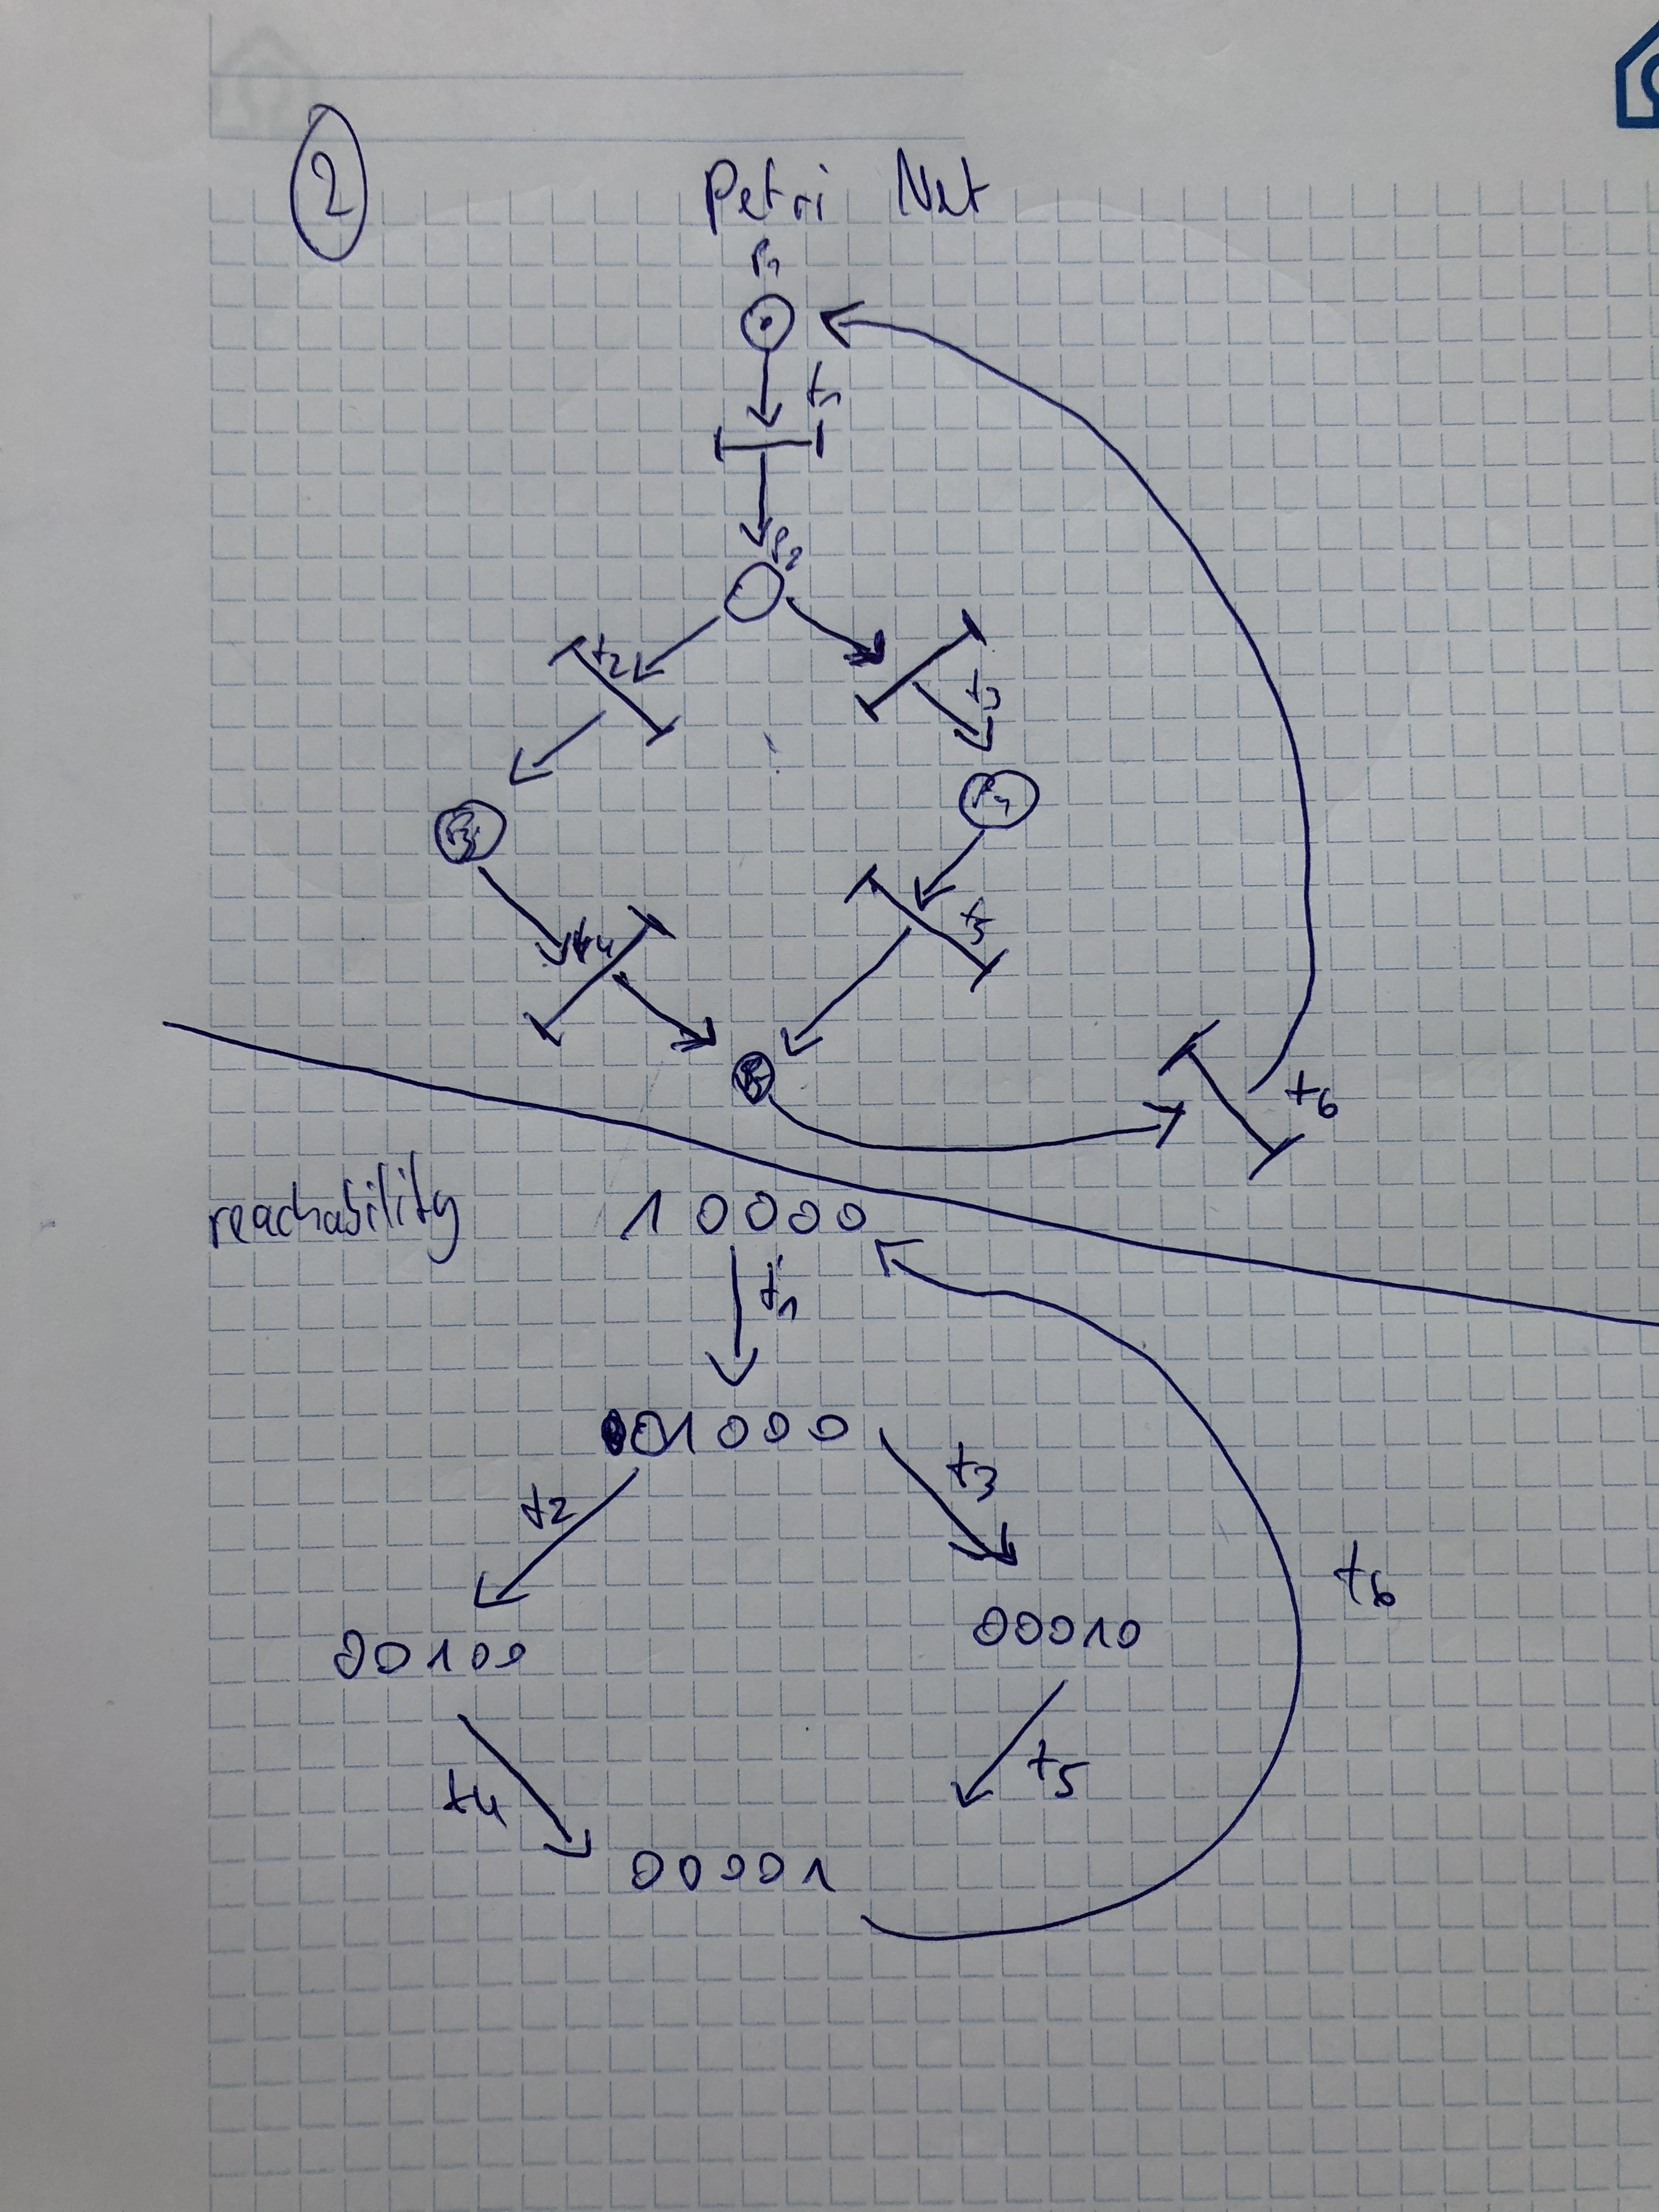 2
Petri Net
P1
t1
P2
t2
t3
P3
P4
t4
t5
P5
t6
reachability
10000
t1
01000
t2
t3
t6
00100
00010
t4
t5
00001